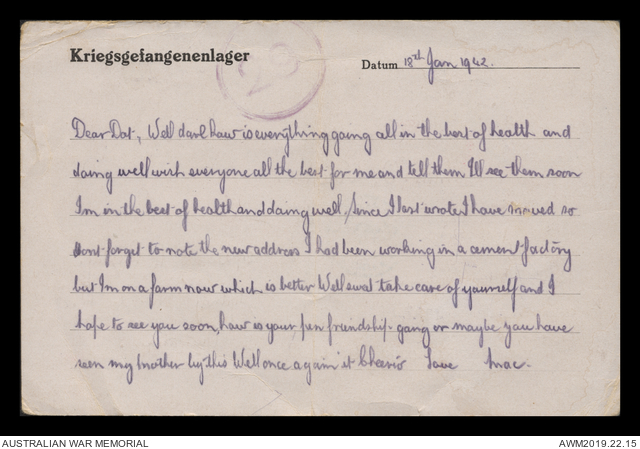 Kriegsgefangenenlager
Datum 18th Jan 1942.
23
Dear Dot, Well darl how is everything going all in the best of health and
doing well wish everyone all the best for me and tell them I'll see them soon
I'm in the best of health and doing well, Since I last wrote I have moved so
dont forget to note the new address I had been working in a cement factory
but I'm on a farm now which is better Well swat take care of yourself and I
hope to see you soon, how is your pen friendship gang or maybe you have
seen my mother by this Well once again it Cheerio Love Mac.
AUSTRALIAN WAR MEMORIAL
AWM2019.22.15